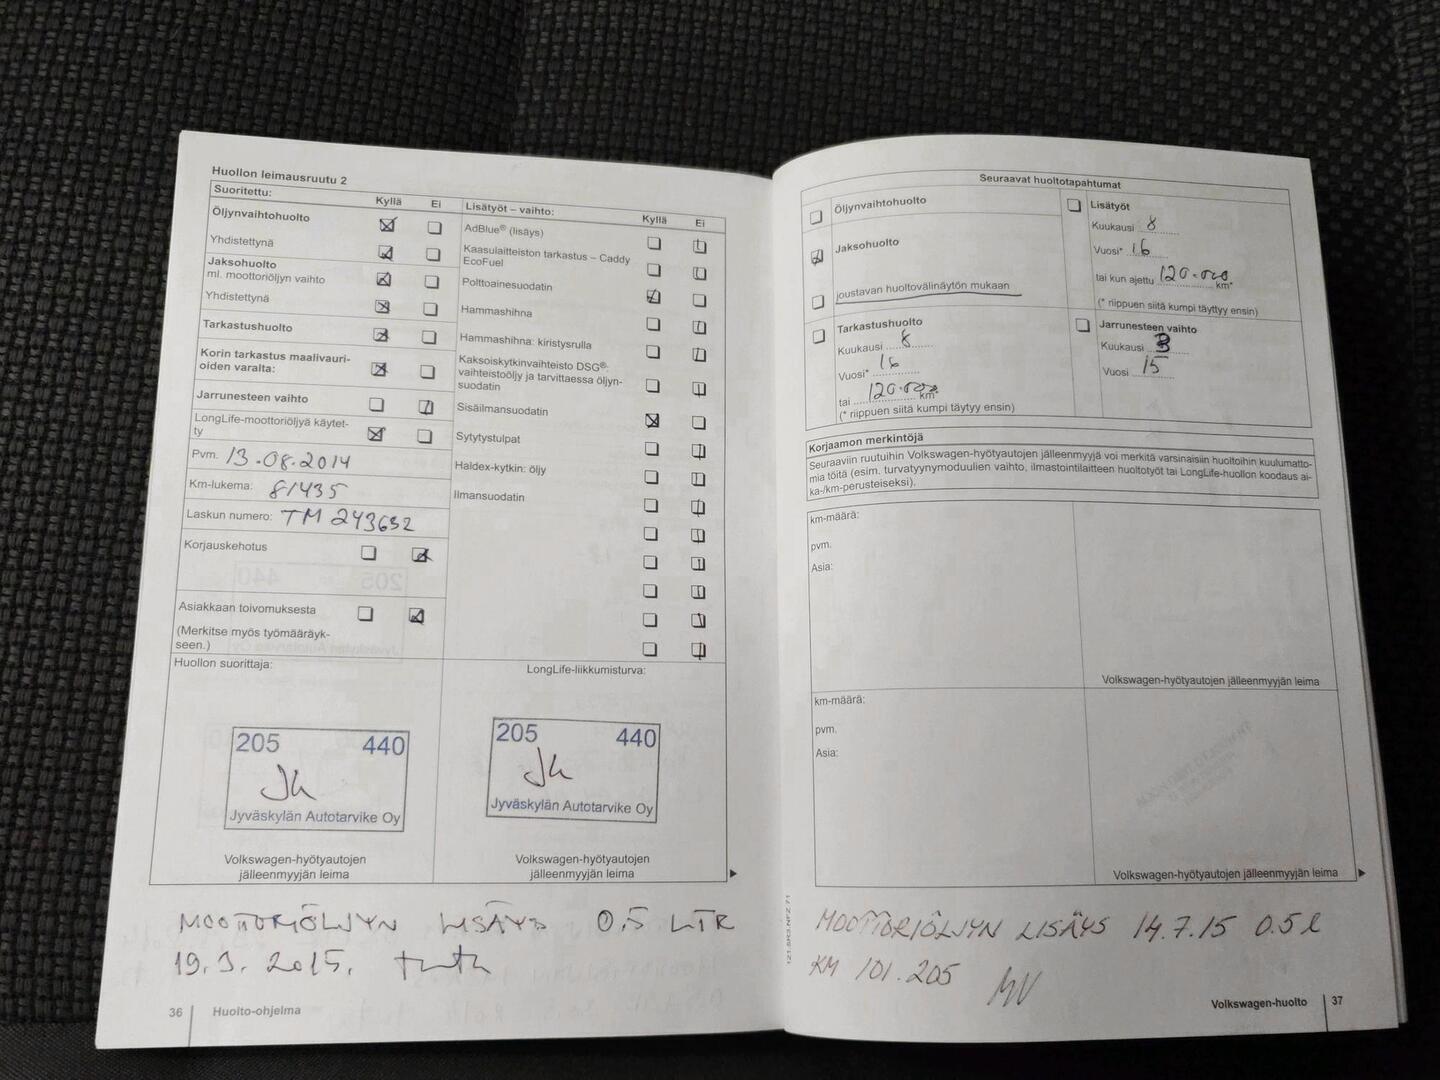 Huollon leimausruutu 2
Suoritettu:
Kyllä Ei
Öljynvaihtohuolto
Yhdistettynä
Jaksohuolto
ml. moottoriöljyn vaihto
Yhdistettynä
Tarkastushuolto
Korin tarkastus maalivauri-
oiden varalta:
Jarrunesteen vaihto
LongLife-moottoriöljyä käytet-
ty
Pvm. 13.08.2014
Km-lukema: 81435
Laskun numero: TM 243632
Korjauskehotus
Asiakkaan toivomuksesta
(Merkitse myös työmääräyk-
seen.)
Lisätyöt – vaihto:
Kyllä Ei
AdBlue® (lisäys)
Kaasulaitteiston tarkastus – Caddy
EcoFuel
Polttoainesuodatin
Hammashihna
Hammashihna: kiristysrulla
Kaksoiskytkinvaihteisto DSG®:
vaihteistoöljy ja tarvittaessa öljyn-
suodatin
Sisäilmansuodatin
Sytytystulpat
Haldex-kytkin: öljy
Ilmansuodatin
Huollon suorittaja:
205 440
Jyväskylän Autotarvike Oy
Volkswagen-hyötyautojen
jälleenmyyjän leima
LongLife-liikkumisturva:
205 440
Jyväskylän Autotarvike Oy
Volkswagen-hyötyautojen
jälleenmyyjän leima
MOOTTORIÖLJYN LISÄYS 0,5 LTR
19.3.2015.
36 Huolto-ohjelma
Seuraavat huoltotapahtumat
Öljynvaihtohuolto
Jaksohuolto
joustavan huoltovälinäytön mukaan
Tarkastushuolto
Kuukausi 8
Vuosi* 16
tai 120.000 km*
(* riippuen siitä kumpi täytyy ensin)
Lisätyöt
Kuukausi 8
Vuosi* 16
tai kun ajettu 120.000 km*
(* riippuen siitä kumpi täyttyy ensin)
Jarrunesteen vaihto
Kuukausi 3
Vuosi 15
Korjaamon merkintöjä
Seuraaviin ruutuihin Volkswagen-hyötyautojen jälleenmyyjä voi merkitä varsinaisiin huoltoihin kuulumatto-
mia töitä (esim. turvatyynymoduulien vaihto, ilmastointilaitteen huoltotyöt tai LongLife-huollon koodaus ai-
ka-/km-perusteiseksi).
km-määrä:
pvm.
Asia:
Volkswagen-hyötyautojen jälleenmyyjän leima
km-määrä:
pvm.
Asia:
Volkswagen-hyötyautojen jälleenmyyjän leima
121.5R3.NFZ.71
MOOTTORIÖLJYN LISÄYS 14.7.15 0.5 l
KM 101.205
Volkswagen-huolto 37